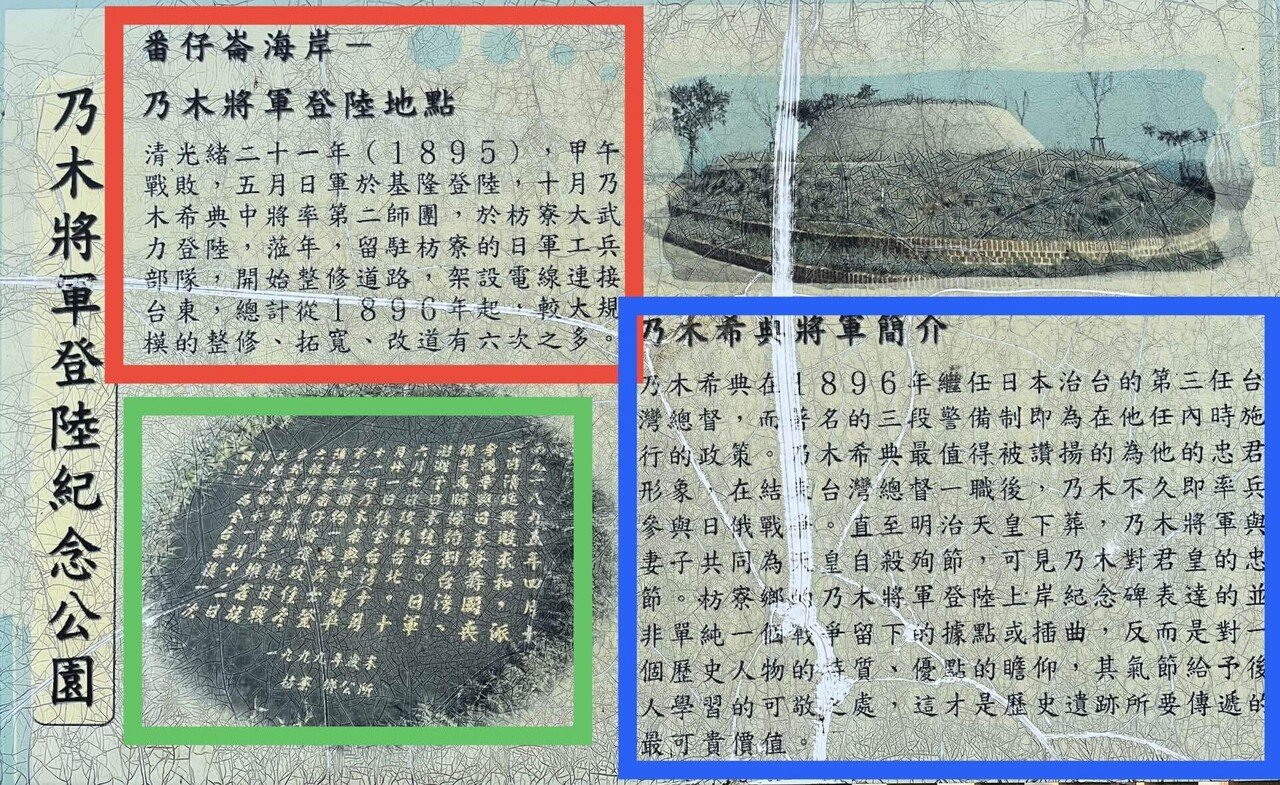 乃木將軍登陸紀念公園
番仔崙海岸－
乃木將軍登陸地點
清光緒二十一年（1895），甲午
戰敗，五月日軍於基隆登陸，十月乃
木希典中將率第二師團，於枋寮大武
力登陸，蒞年，留駐枋寮的日軍工兵
部隊，開始整修道路，架設電線連接
台東，總計從1896年起，較大規
模的整修、拓寬、改道有六次之多。
一八九五年四月十
七日清廷戰敗求和，派
李鴻章與日本簽
割台灣、
澎湖予日本統治。日軍
六月七日攻佔台北，十
乃木希典將軍簡介
乃木希典在1896年繼任日本治台的第三任台
灣總督，而著名的三段警備制即為在他任內時施
行的政策。乃木希典最值得被讚揚的為他的忠君
形象，在結束台灣總督一職後，乃木不久即率兵
參與日俄戰爭。直至明治天皇下葬，乃木將軍與
妻子共同為天皇自殺殉節，可見乃木對君皇的忠
節。枋寮鄉的乃木將軍登陸上岸紀念碑表達的並
非單純一個戰爭留下的據點或插曲，反而是對一
個歷史人物的特質、優點的瞻仰，其氣節給予後
人學習的可敬之處，這才是歷史遺跡所要傳遞的
最可貴價值。